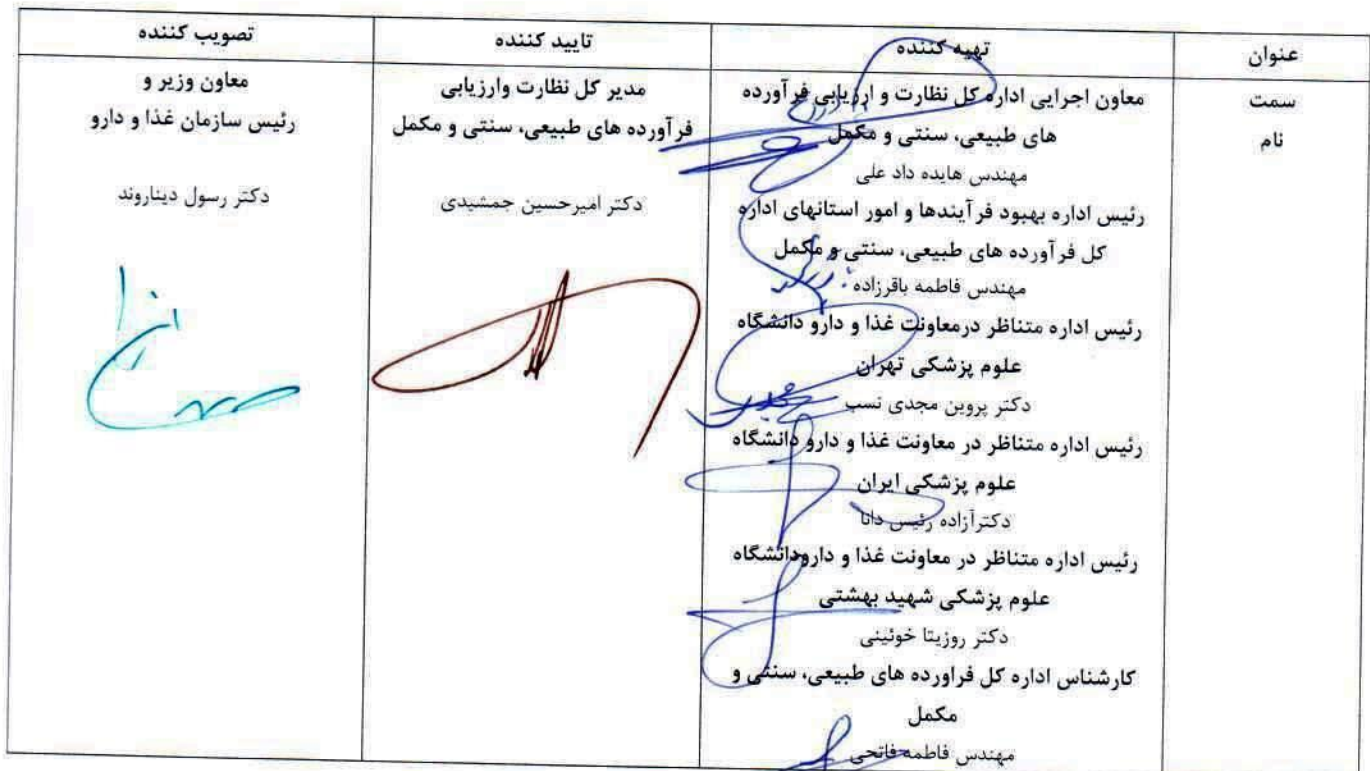 عنوان
تهیه کننده
تایید کننده
تصویب کننده
سمت
نام
معاون اجرایی اداره کل نظارت و ارزیابی فرآورده
های طبیعی، سنتی و مکمل
مهندس هایده داد علی
رئیس اداره بهبود فرآیندها و امور استانهای اداره
کل فرآورده های طبیعی، سنتی و مکمل
مهندس فاطمه باقرزاده
رئیس اداره متناظر درمعاونت غذا و دارو دانشگاه
علوم پزشکی تهران
دکتر پروین مجدی نسب
رئیس اداره متناظر در معاونت غذا و دارو دانشگاه
علوم پزشکی ایران
دکترآزاده رئیس دانا
رئیس اداره متناظر در معاونت غذا و دارودانشگاه
علوم پزشکی شهید بهشتی
دکتر روزیتا خوئینی
کارشناس اداره کل فراورده های طبیعی، سنتی و
مکمل
مهندس فاطمه فاتحی
مدیر کل نظارت وارزیابی
فرآورده های طبیعی، سنتی و مکمل
دکتر امیرحسین جمشیدی
معاون وزیر و
رئیس سازمان غذا و دارو
دکتر رسول دیناروند